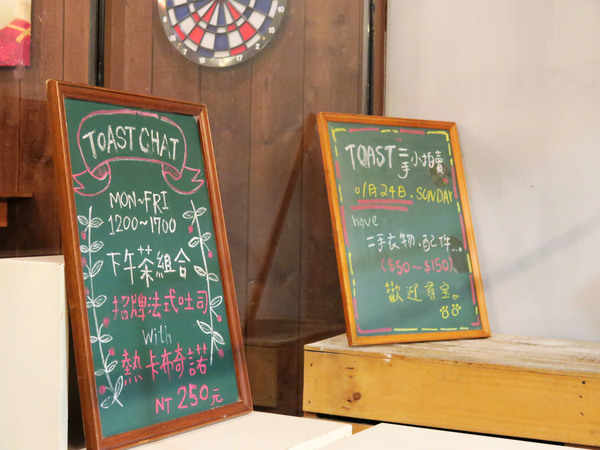 TOAST CHAT
MON~FRI
1200~1700
下午茶組合
招牌法式吐司
with
熱卡布奇諾
NT 250元
TOAST 二手小拍賣
01月24日. SUNDAY
have
二手衣物.配件...
($50~$150)
歡迎尋寶。